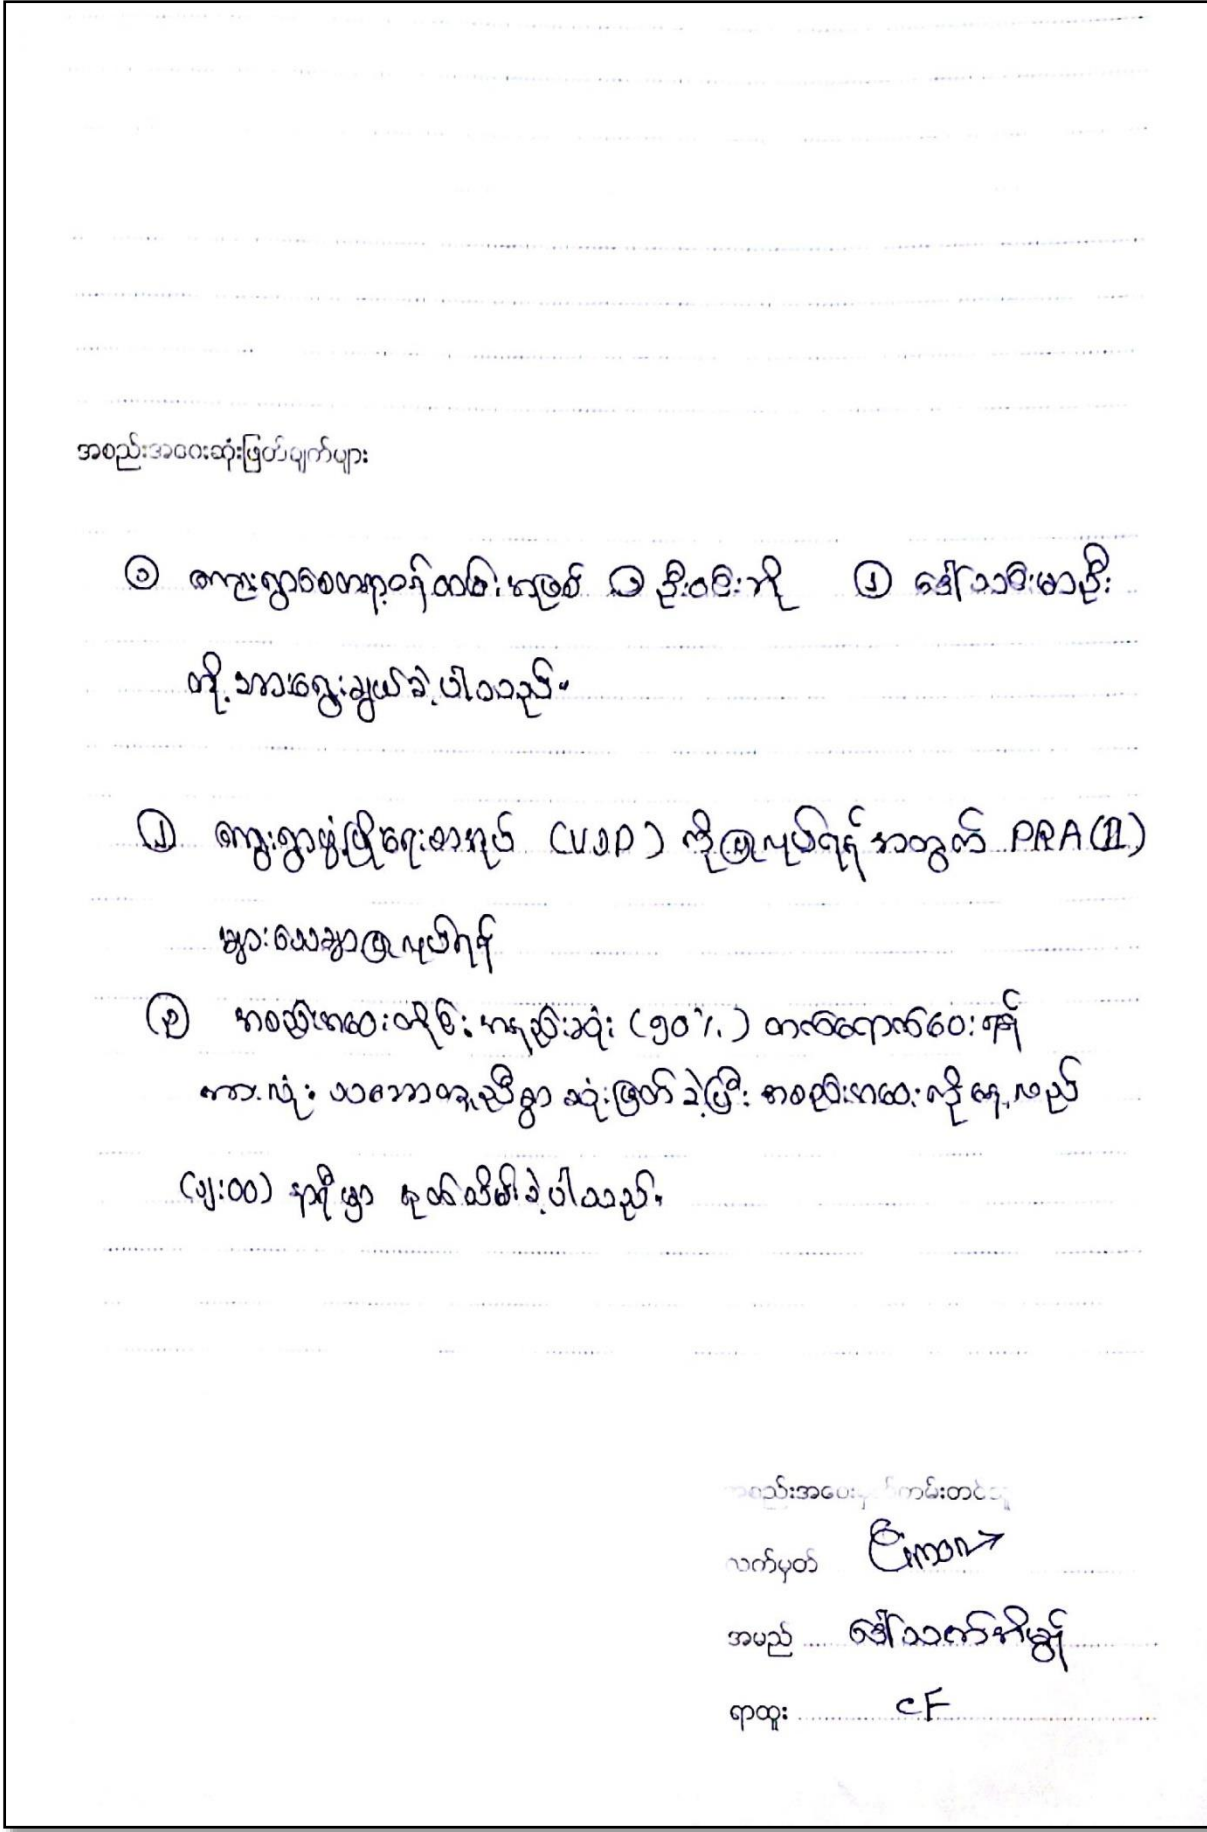 အစည်းအဝေးဆုံးဖြတ်ချက်များ
① ကျေးရွာစေတနာ့ဝန်ထမ်းအဖြစ် ① ဦးဝင်းကို ② ဒေါ်သင်းမာဦး
တို့အားရွေးချယ်ခဲ့ပါသည်။
② ကျေးရွာဖွံ့ဖြိုးရေးစာအုပ် (VDP) ကိုပြုလုပ်ရန်အတွက် PRA(II)
များသေချာပြုလုပ်ရန်
③ အစည်းအဝေးတိုင်း အနည်းဆုံး (၅၀%) တက်ရောက်ပေးရန်
အားလုံး သဘောတူညီစွာ ဆုံးဖြတ်ခဲ့ပြီး အစည်းအဝေးကိုနေ့လည်
(၁၂:၀၀) နာရီမှာ ရုတ်သိမ်းခဲ့ပါသည်။
အစည်းအဝေးမှတ်တမ်းတင်သူ
လက်မှတ်
အမည် ဒေါ်သက်အိမွန်
ရာထူး CF